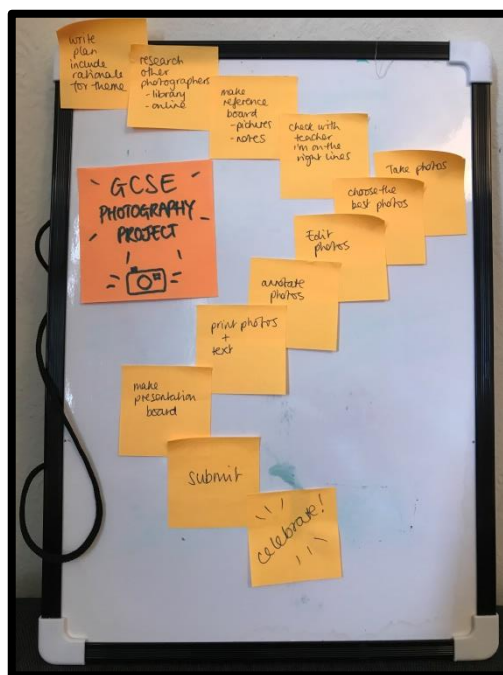 write
plan
include
rationale
for theme
research
other
photographers
- library
- online
make
reference
board
- pictures
- notes
check with
teacher
i'm on the
right lines
Take photos
choose the
best photos
Edit
photos
annotate
photos
print photos
+
text
make
presentation
board
submit
celebrate!
GCSE
PHOTOGRAPHY
PROJECT